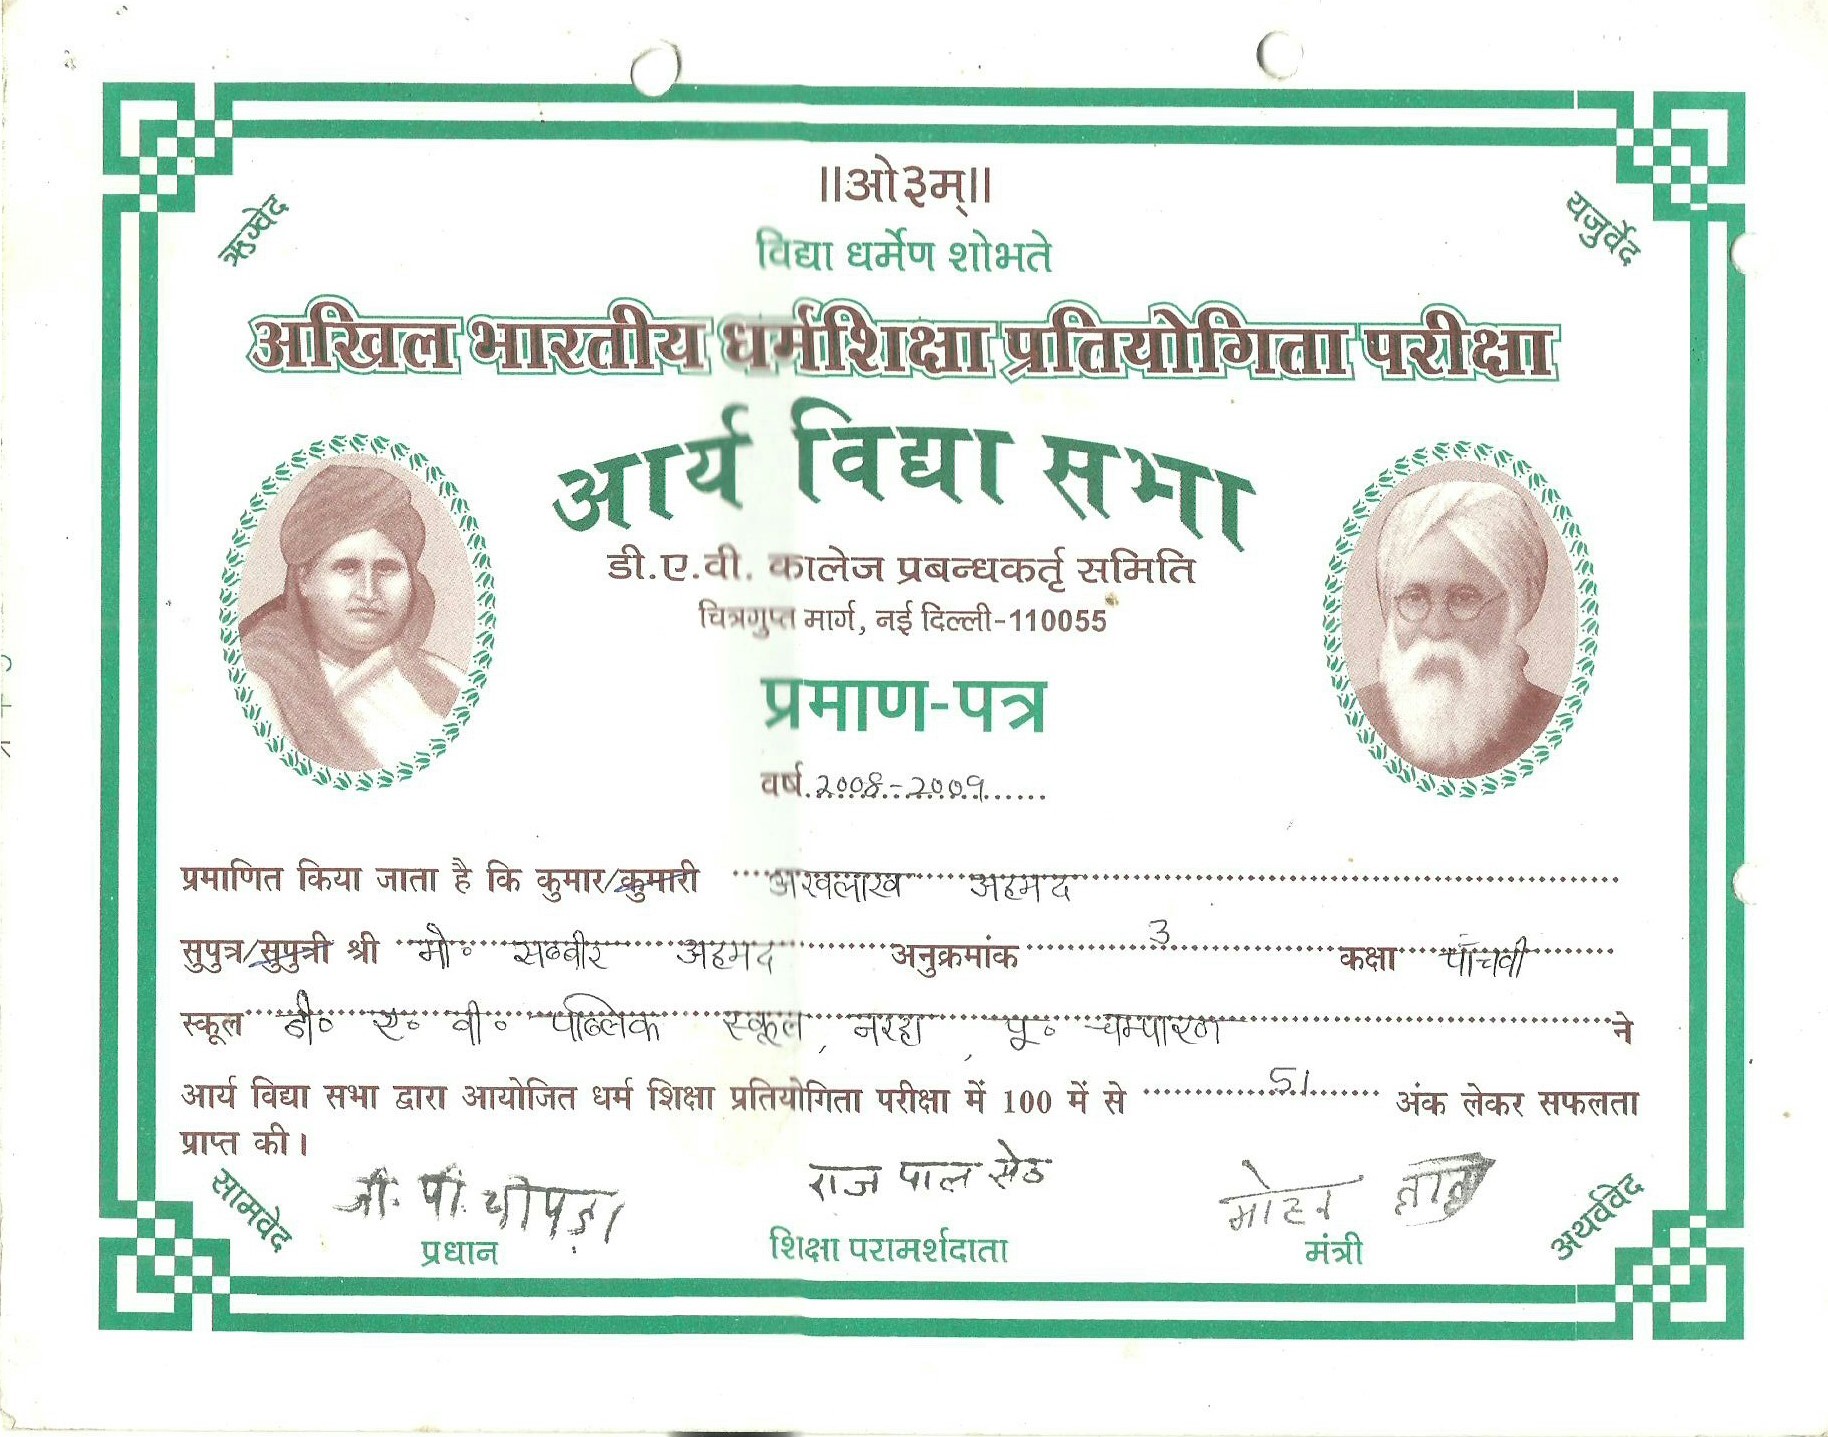 ॥ओ३म्॥
ऋग्वेद
यजुर्वेद
विद्या धर्मेण शोभते
अखिल भारतीय धर्मशिक्षा प्रतियोगिता परीक्षा
आर्य विद्या सभा
डी.ए.वी. कालेज प्रबन्धकर्तृ समिति
चित्रगुप्त मार्ग, नई दिल्ली-110055
प्रमाण-पत्र
वर्ष 2008-2009
प्रमाणित किया जाता है कि कुमार/कुमारी अखलाख अहमद
सुपुत्र/सुपुत्री श्री मो॰ सब्बीर अहमद अनुक्रमांक 3 कक्षा पाँचवी
स्कूल डी॰ ए॰ वी॰ पब्लिक स्कूल, नरहा, पू॰ चम्पारण ने
आर्य विद्या सभा द्वारा आयोजित धर्म शिक्षा प्रतियोगिता परीक्षा में 100 में से 51 अंक लेकर सफलता
प्राप्त की।
सामवेद
जी. पी. चोपड़ा
राज पाल सेठ
मोहन लाल
अथर्ववेद
प्रधान
शिक्षा परामर्शदाता
मंत्री